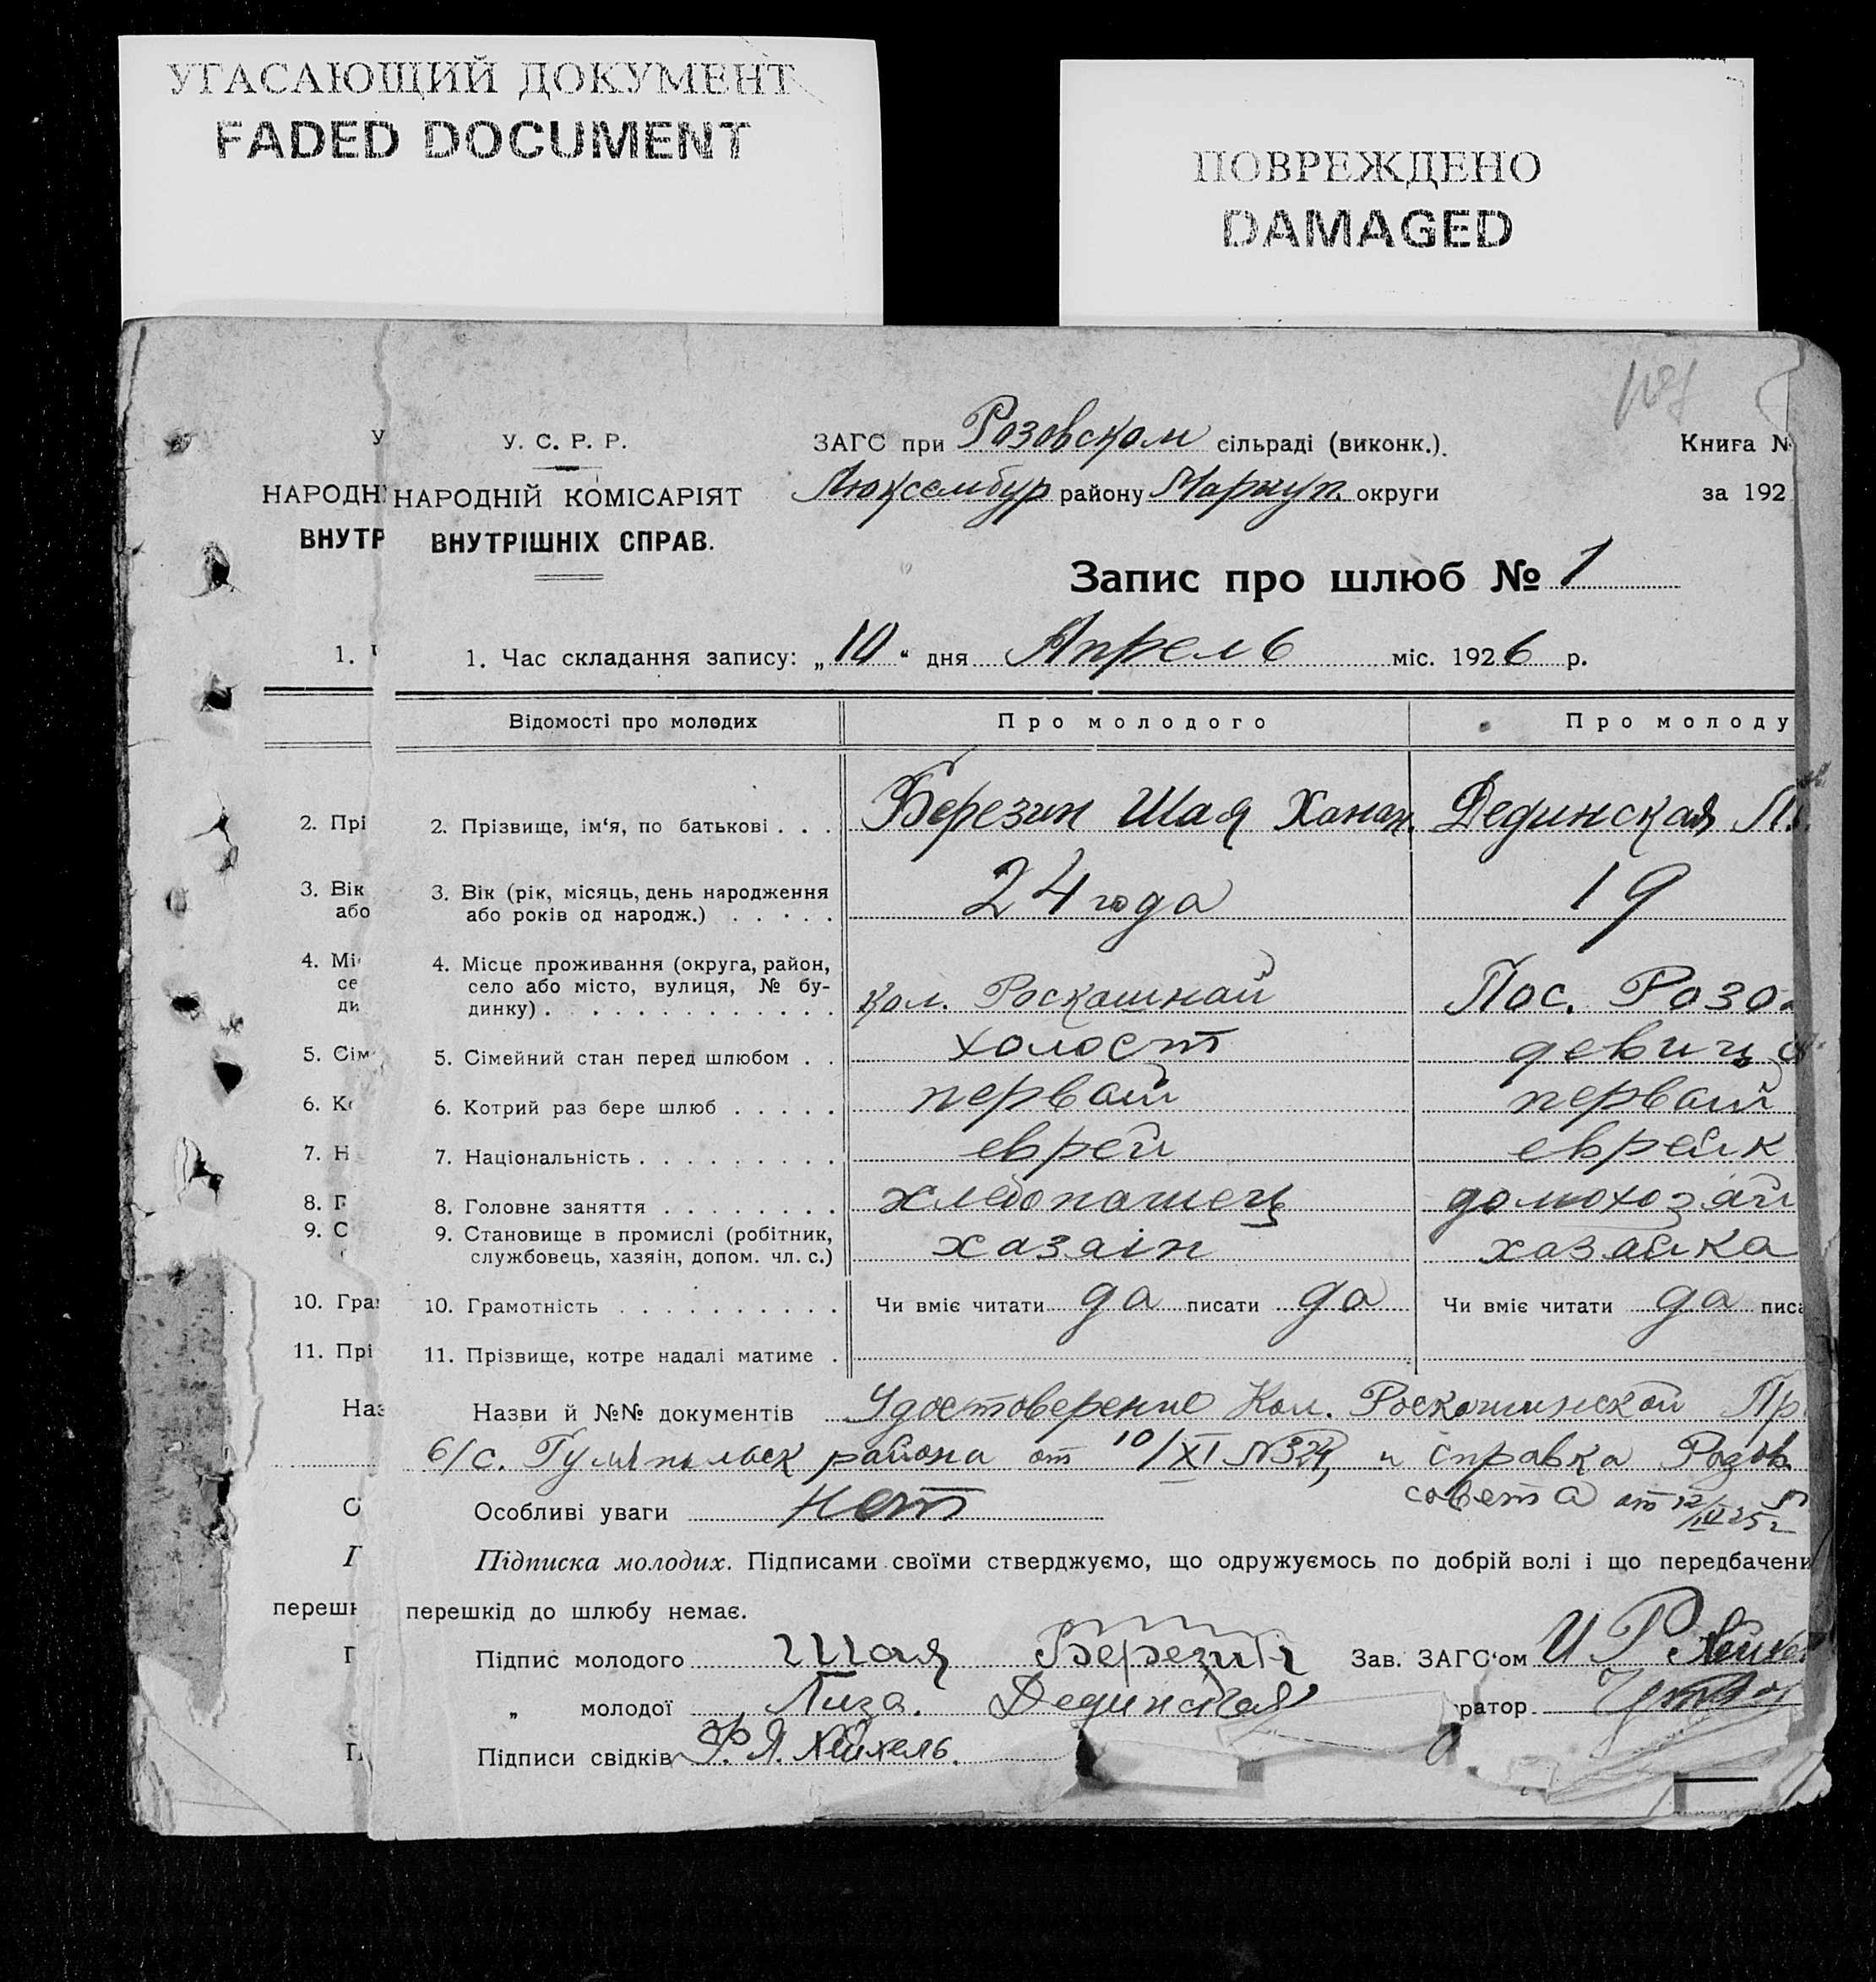 УГАСАЮЩИЙ ДОКУМЕНТ
FADED DOCUMENT
ПОВРЕЖДЕНО
DAMAGED
У
НАРОДН
ВНУТР
У. С. Р. Р.
НАРОДНІЙ КОМІСАРІЯТ
ВНУТРІШНІХ СПРАВ.
ЗАГС при Розовском сільраді (виконк.).
Люксембур району Мариуп. округи
Книга №
за 192
Запис про шлюб № 1
1.
1. Час складання запису: „10“ дня Апрель міс. 1926 р.
Відомості про молодих
Про молодого
Про молоду
2. Прі
2. Прізвище, ім‘я, по батькові . . . Березин Шая Ханан. Дединская
3. Вік
або
3. Вік (рік, місяць, день народження
або років од народж.) . . . . . 24 года 19
4. Мі
се
ди
4. Місце проживання (округа, район,
село або місто, вулиця, № бу-
динку) . . . . . . . . . . . . . кол. Роскошнай Пос. Розо
5. Сім
5. Сімейний стан перед шлюбом . . холост девиц
6. К
6. Котрий раз бере шлюб . . . . . первай первай
7. Н
7. Національність . . . . . . . . . еврей еврейк
8. Г
8. Головне заняття . . . . . . . . хлебопашец домохозяй
9. С
9. Становище в промислі (робітник,
службовець, хазяін, допом. чл. с.) хазаін хазайка
10. Гра
10. Грамотність . . . . . . . . . . . Чи вміє читати да писати да Чи вміє читати да писа
11. Прі
11. Прізвище, котре надалі матиме .
Наз
Назви й №№ документів Удостоверение Кол. Роскошинской Пр
б/с. района от 10/XI №324, и справка Розов.
совета от
О
Особливі уваги нет
Г
Підписка молодих. Підписами своїми стверджуємо, що одружуємось по добрій волі і що передбачени
переш
перешкід до шлюбу немає.
Підпис молодого Шая Березин Зав. ЗАГС‘ом И Р
„ молодої Лиза. Дединская ратор
Підписи свідків Ф. Я. Хейхель.